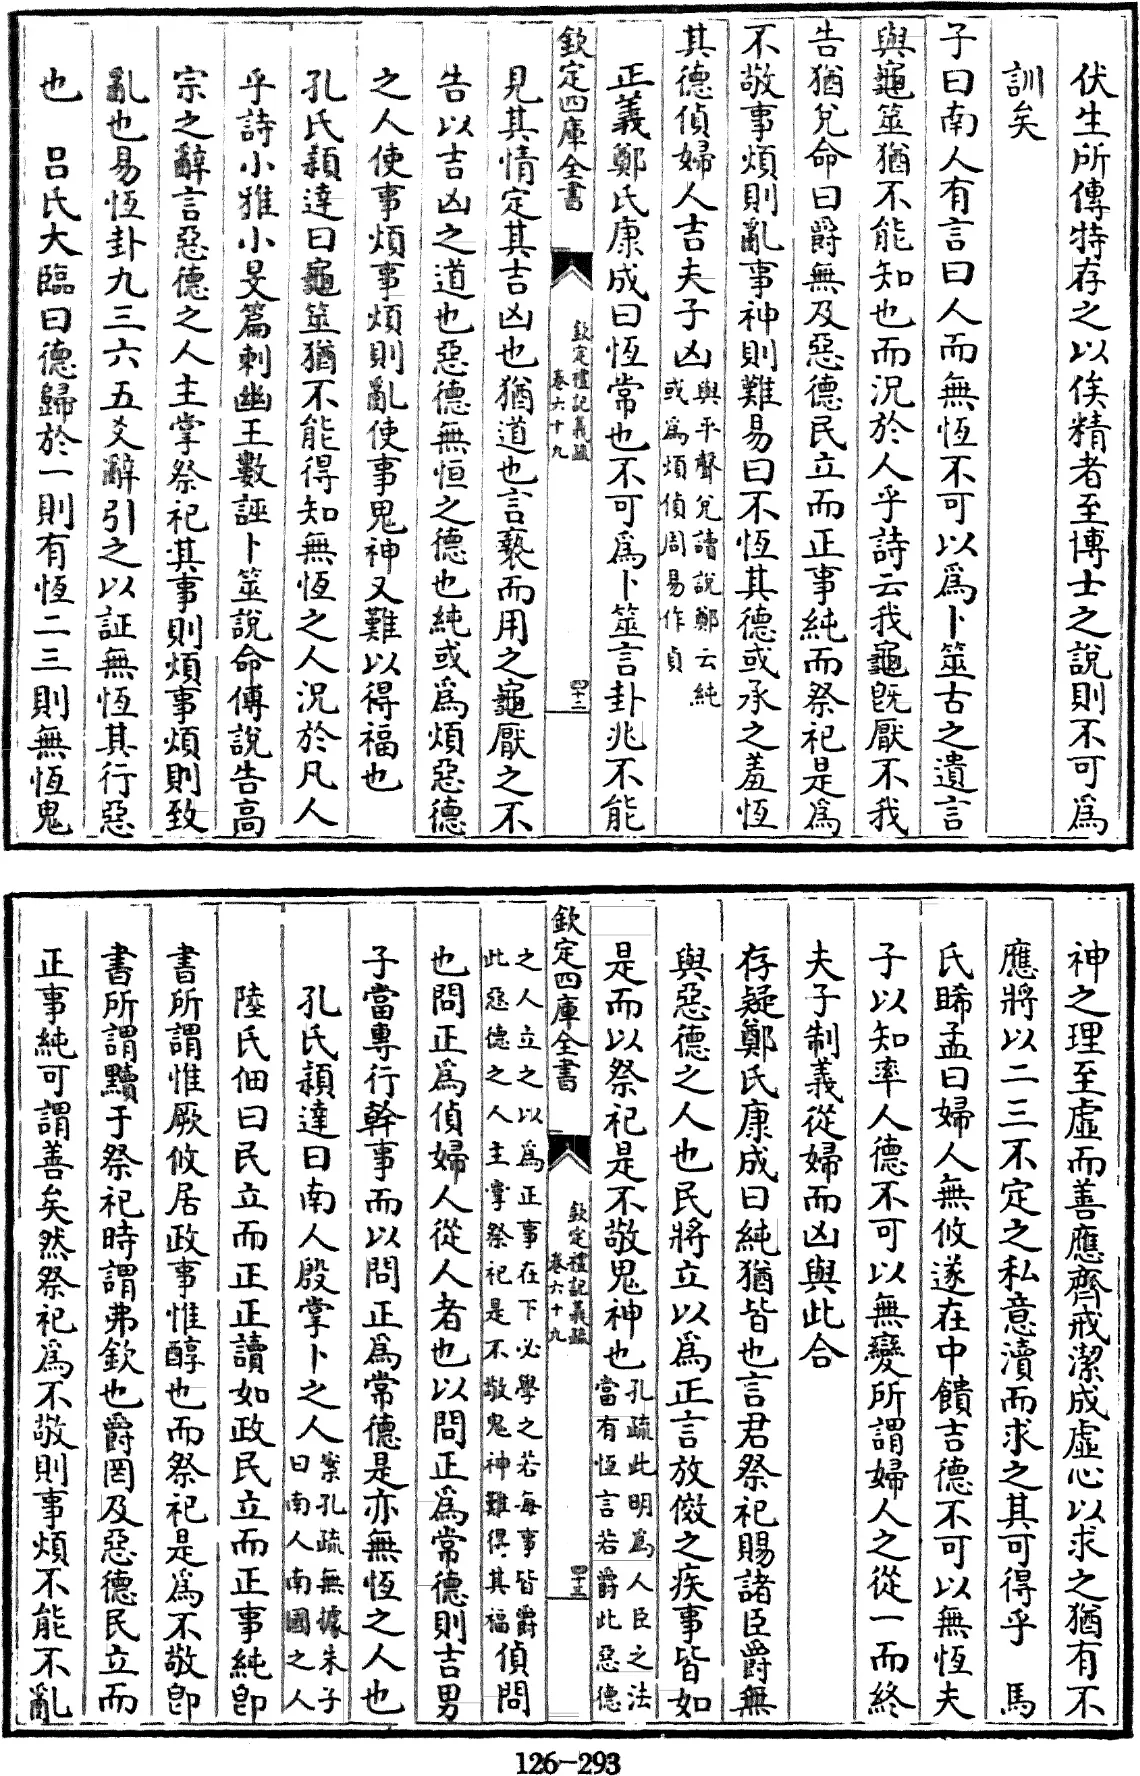 伏生所傳特存之以俟精者至博士之說則不可爲
訓矣
子曰南人有言曰人而無恆不可以爲卜筮古之遺言
與龜筮猶不能知也而況於人乎詩云我龜旣厭不我
告猶兌命曰爵無及惡德民立而正事純而祭祀是爲
不敬事煩則亂事神則難易曰不恆其德或承之羞恆
其德偵婦人吉夫子凶與平聲兌讀說鄭云純
或爲煩偵周易作貞
正義鄭氏康成曰恆常也不可爲卜筮言卦兆不能
欽定四庫全書
欽定禮記義疏
卷六十九
四十二
見其情定其吉凶也猶道也言褻而用之龜厭之不
告以吉凶之道也惡德無恒之德也純或爲煩惡德
之人使事煩事煩則亂使事鬼神又難以得福也
孔氏穎達曰龜筮猶不能得知無恆之人況於凡人
乎詩小雅小旻篇刺幽王數誣卜筮說命傅說告高
宗之辭言惡德之人主掌祭祀其事則煩事煩則致
亂也易恆卦九三六五爻辭引之以証無恆其行惡
也 呂氏大臨曰德歸於一則有恆二三則無恆鬼
神之理至虛而善應齊戒潔成虛心以求之猶有不
應將以二三不定之私意瀆而求之其可得乎 馬
氏晞孟曰婦人無攸遂在中饋吉德不可以無恆夫
子以知率人德不可以無變所謂婦人之從一而終
夫子制義從婦而凶與此合
存疑鄭氏康成曰純猶皆也言君祭祀賜諸臣爵無
與惡德之人也民將立以爲正言放傚之疾事皆如
是而以祭祀是不敬鬼神也孔疏此明爲人臣之法
當有恆言若爵此惡德
欽定四庫全書
欽定禮記義疏
卷六十九
四十三
之人立之以爲正事在下必學之若每事皆爵
此惡德之人主掌祭祀是不敬鬼神難得其福偵問
也問正爲偵婦人從人者也以問正爲常德則吉男
子當專行幹事而以問正爲常德是亦無恆之人也
孔氏穎達曰南人殷掌卜之人案孔疏無據朱子
曰南人南國之人
陸氏佃曰民立而正正讀如政民立而正事純卽
書所謂惟厥攸居政事惟醇也而祭祀是爲不敬卽
書所謂黷于祭祀時謂弗欽也爵罔及惡德民立而
正事純可謂善矣然祭祀爲不敬則事煩不能不亂
126-293